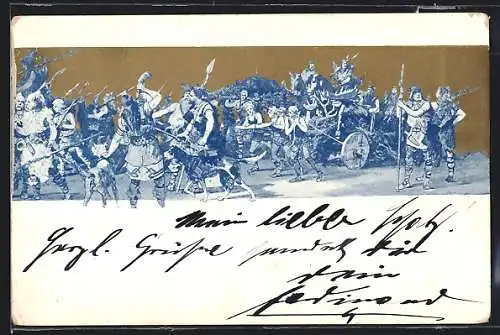 Mein liebster Schatz!
Herzl. Grüße sendet dir
dein
Ferdinand